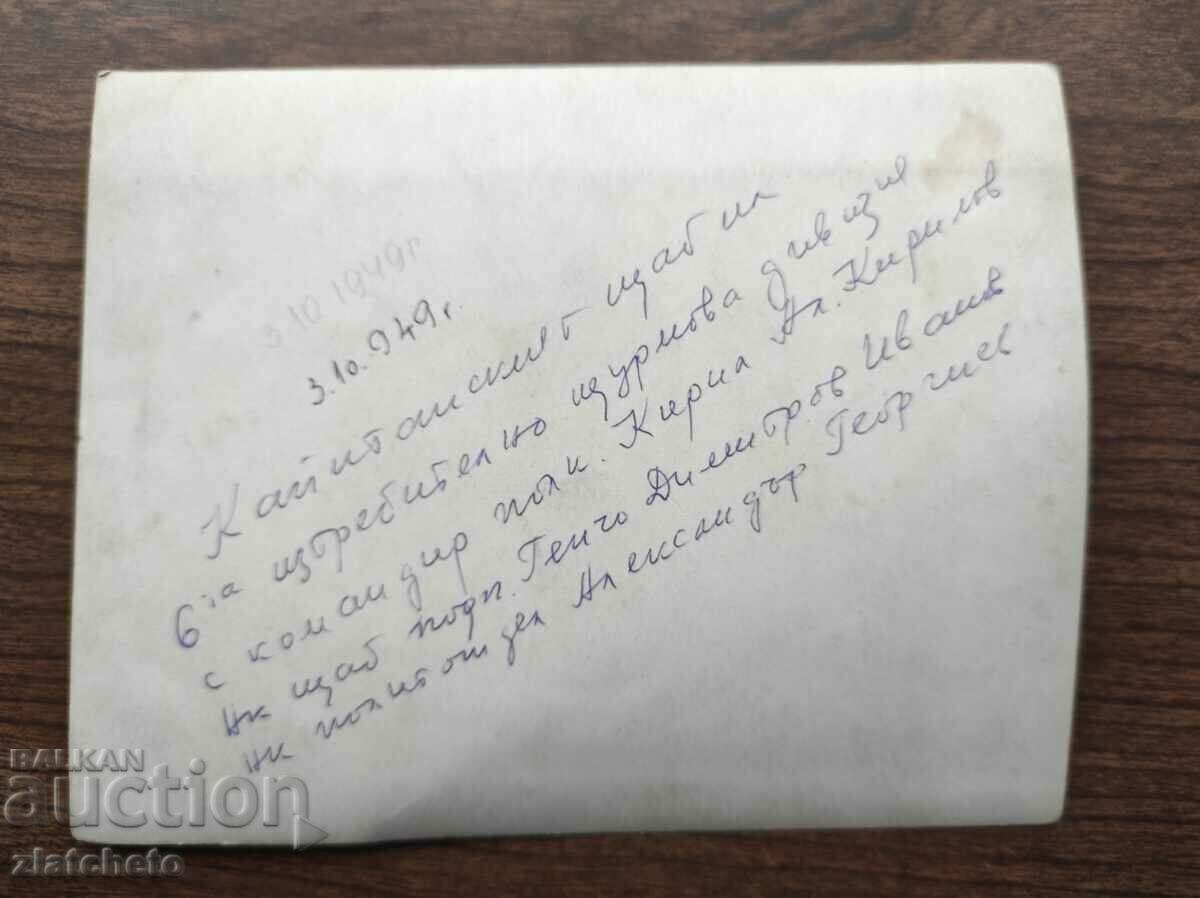 3 10 1949 г
3.10.949 г.
Капитанският щаб на
6-та изтребително щурмова дивизия
с командир полк. Кирил Ал. Кирилов
Нк щаб подп. Генчо Димитров Иванов
Нк политотдел Александър Георгиев
BALKAN
auction
zlatcheto